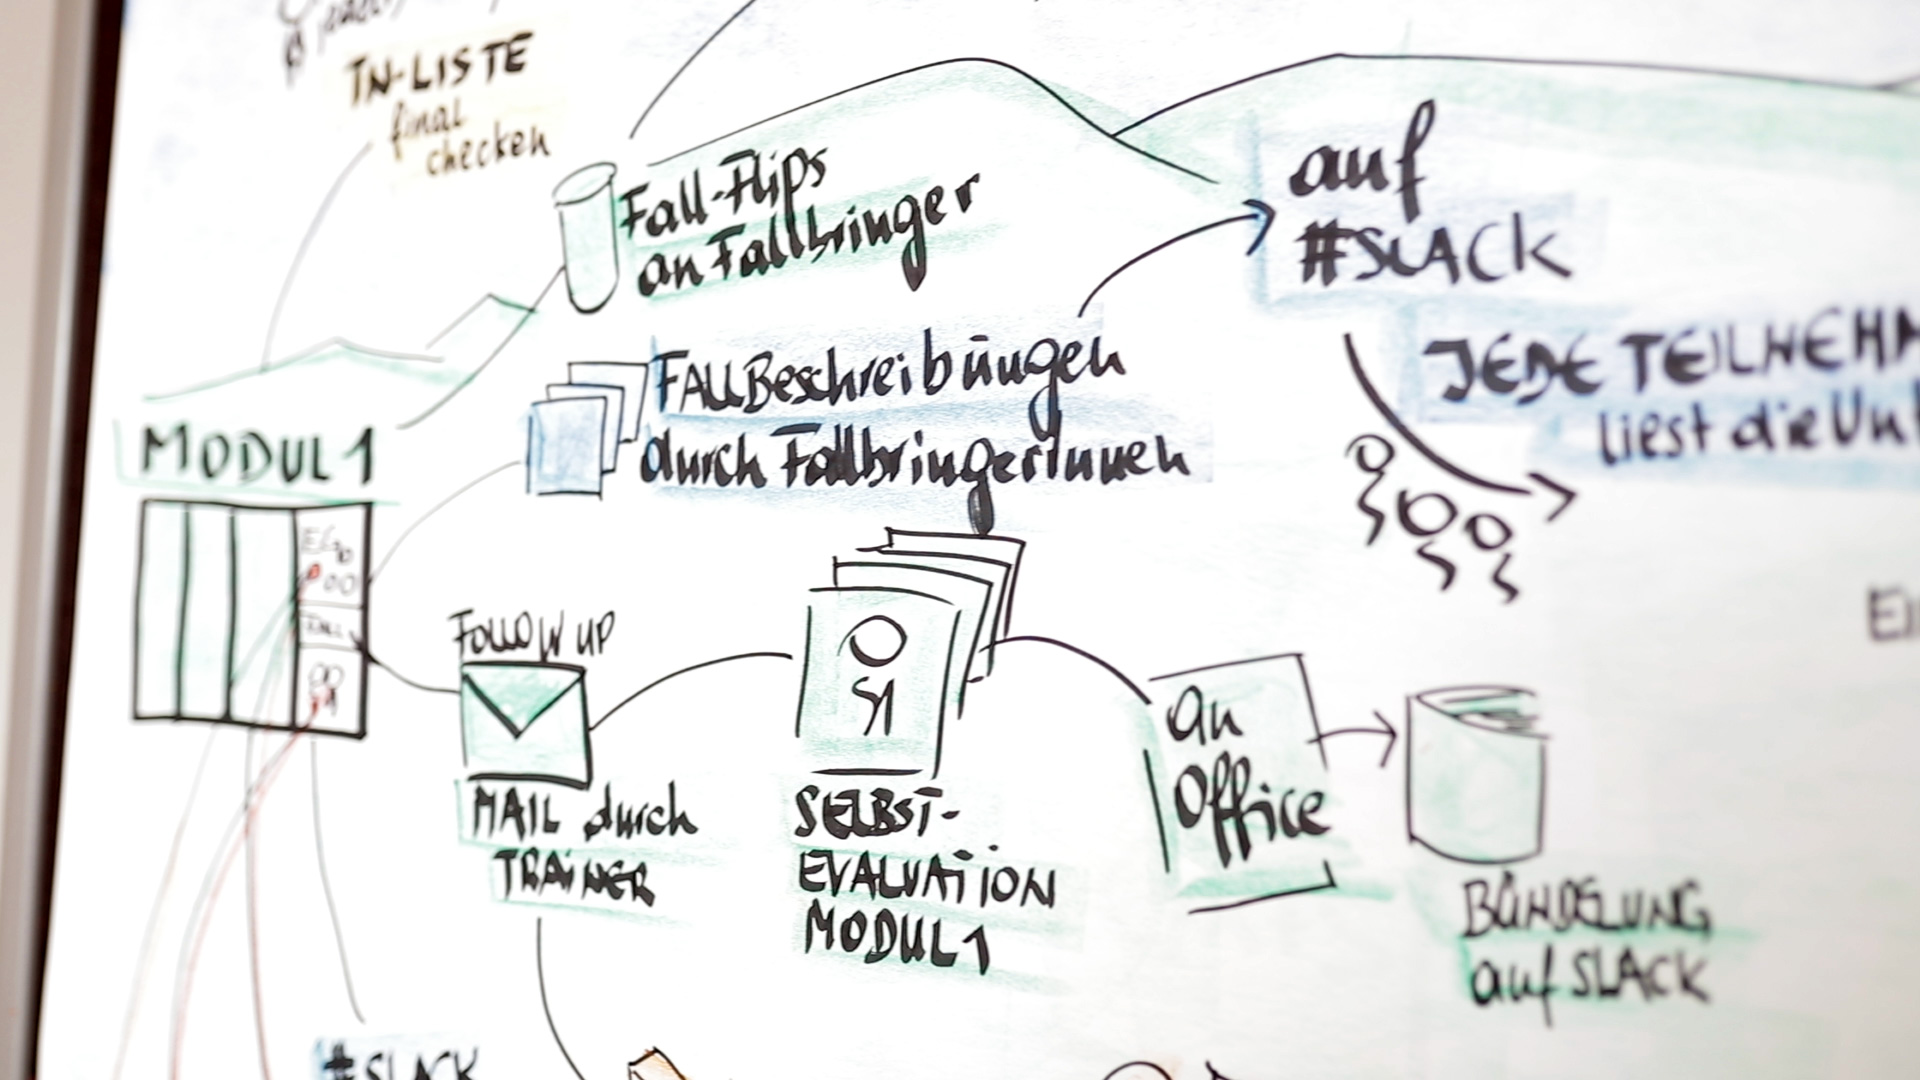 TN-LISTE
final
checken
Fall-Flips
an Fallbringer
auf
#SLACK
FALLBeschreibungen
durch FallbringerInnen
JEDE TEILNEHM
liest die Unt
MODUL 1
FOLLOW UP
MAIL durch
TRAINER
SELBST-
EVALUATION
MODUL 1
an
Office
BÜNDELUNG
auf SLACK
#SLACK